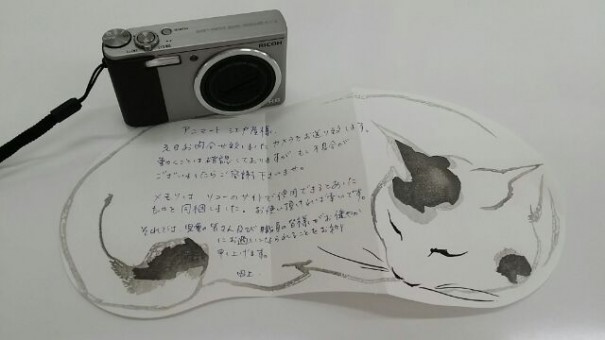 RICOH
アニマート しまや原様、
先日お問合せ致しましたカメラをお送り致します。
動くことは確認しておりますが もし不具合が
ございましたらご容赦下さいませ。
メモリは リコーのサイトで使用できるとあった
ものを同梱しました。お使い頂ければ幸いです。
それでは 児童の皆さん及び職員の皆様がお健やか
にお過しになられることをお祈り
申し上げます。